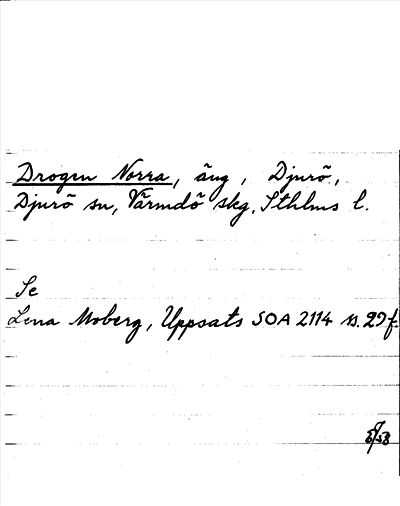 Drogen Norra, äng, Djurö,
Djurö sn, Värmdö skg, Sthlms l.
Se
Lena Moberg, Uppsats SOA 2114 s. 29 f.